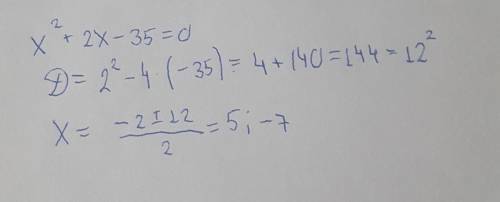 x² + 2x - 35 = 0
D = 2² - 4 · (-35) = 4 + 140 = 144 = 12²
x = (-2 ± 12)/2 = 5; -7